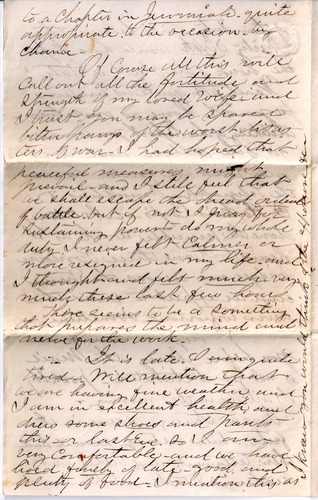 to a chapter in Jeremiah quite
appropriate to the occasion by
chance.
Of course all this will
call out all the fortitude and
strength of my loved wife and
I trust you may be spared
bitter pangs of the worst
ters. of war. I had hoped that
peaceful measures might
prevail and I still feel that
we shall escape the dread ordeal
of battle. but if not I pray for
sustaining power to do my whole
duty. I never felt calmer or
more resigned in my life and
I thought and felt much, very
much these last few hours.
There seems to be a something
that prepares the mind and
nerve for the work.
It is late. I am quite
tired. Will mention that
we are having fine weather and
I am in excellent health, and
drew some shoes and pants
this or last eve. so I am
very comfortable and we have
lived finely of late good and
plenty of food. I mention this as
I know you would think of the